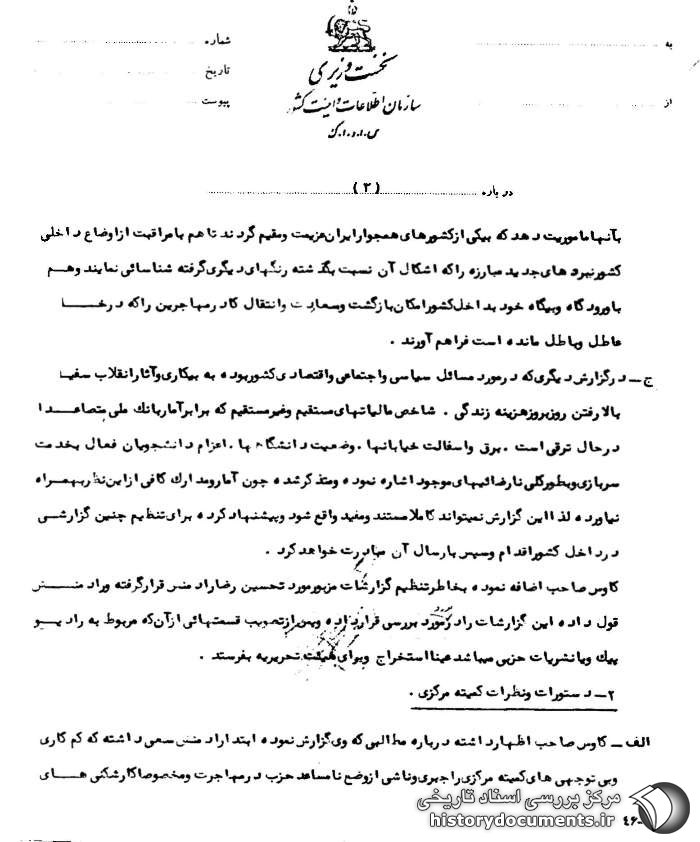 نخست وزیری
سازمان اطلاعات و امنیت کشور
س.ا.و.ا.ک
به
از
شماره
تاریخ
پیوست
درباره (۲)
بآنها ماموریت دهد که بیکی از کشورهای همجوار ایران عزیمت و مقیم گردند تا هم با مراقبت از اوضاع داخلی
کشور نبردهای جدید مبارزه را که اشکال آن نسبت بگذشته رنگهای دیگری گرفته شناسائی نمایند و هم
با ورود گاه و بیگاه خود بداخل کشور امکان بازگشت و انتقال کادر مهاجرین را که در خفا
عاطل و باطل مانده است فراهم آورند .
ج ـ در گزارش دیگری که در مورد مسائل سیاسی و اجتماعی و اقتصادی کشور بوده به بیکاری و آثار انقلاب سفید
بالا رفتن روز بروز هزینه زندگی . شاخص مالیاتهای مستقیم و غیر مستقیم که برابر آمار بانک ملی متصاعدا
در حال ترقی است . برق و اسفالت خیابانها . وضعیت دانشگاه ها . اعزام دانشجویان فعال بخدمت
سربازی و بطور کلی نارضائیهای موجود اشاره نموده و متذکر شده چون آمار و مدارک کافی از این نظر بهمراه
نیاورده لذا این گزارش نمیتواند کاملا مستند و مفید واقع شود و پیشنهاد کرده برای تنظیم چنین گزارشی
در داخل کشور اقدام و سپس بارسال آن مبادرت خواهد کرد .
کاوس صاحب اضافه نموده بخاطر تنظیم گزارشات مزبور مورد تحسین رضا رادمنش قرار گرفته و رادمنش
قول داده این گزارشات را در مورد بررسی قرار داده و پس از تصویب قسمتهائی از آن که مربوط به رادیو
پیک و یا نشریات حزبی میباشد عینا استخراج و برای هیئت تحریریه بفرستد .
۲ ـ دستورات و نظرات کمیته مرکزی .
الف ـ کاوس صاحب اظهار داشته درباره مطالبی که وی گزارش نموده ابتدا رادمنش سعی داشته که کم کاری
و بی توجهی های کمیته مرکزی را جبری و ناشی از وضع نامساعد حزب در مهاجرت و مخصوصا کارشکنی های
مرکز بررسی اسناد تاریخی
historydocuments.ir